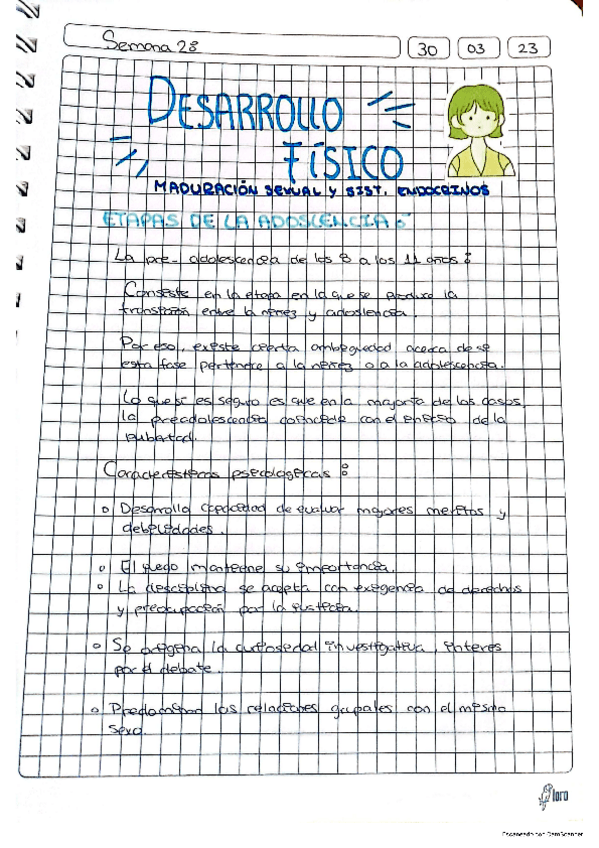 Semana 28
30 03 23
DESARROLLO
FÍSICO
MADURACIÓN SEXUAL Y SIST. ENDOCRINOS
ETAPAS DE LA ADOSCENCIA:
La pre-adolescencia de los 8 a los 11 años:
Consiste en la etapa en la que se produce la
transición entre la niñez y adoslencia.
Por eso, existe cierta ambigüedad acerca de si
esta fase pertenece a la niñez o a la adolescencia.
Lo que si es seguro es que en la mayoría de los casos,
la preadolescencia coincide con el inicio de la
pubertad.
Características psicológicas:
Desarrolla capacidad de evaluar mayores meritos y
debilidades.
El juego mantiene su importancia.
La disciplina se acepta con exigencia de derechos
y preocupación por la justicia.
Se origina la curiosidad investigativa, interes
por el debate.
Predominan las relaciones grupales con el mismo
sexo.
loro
Escaneado con CamScanner